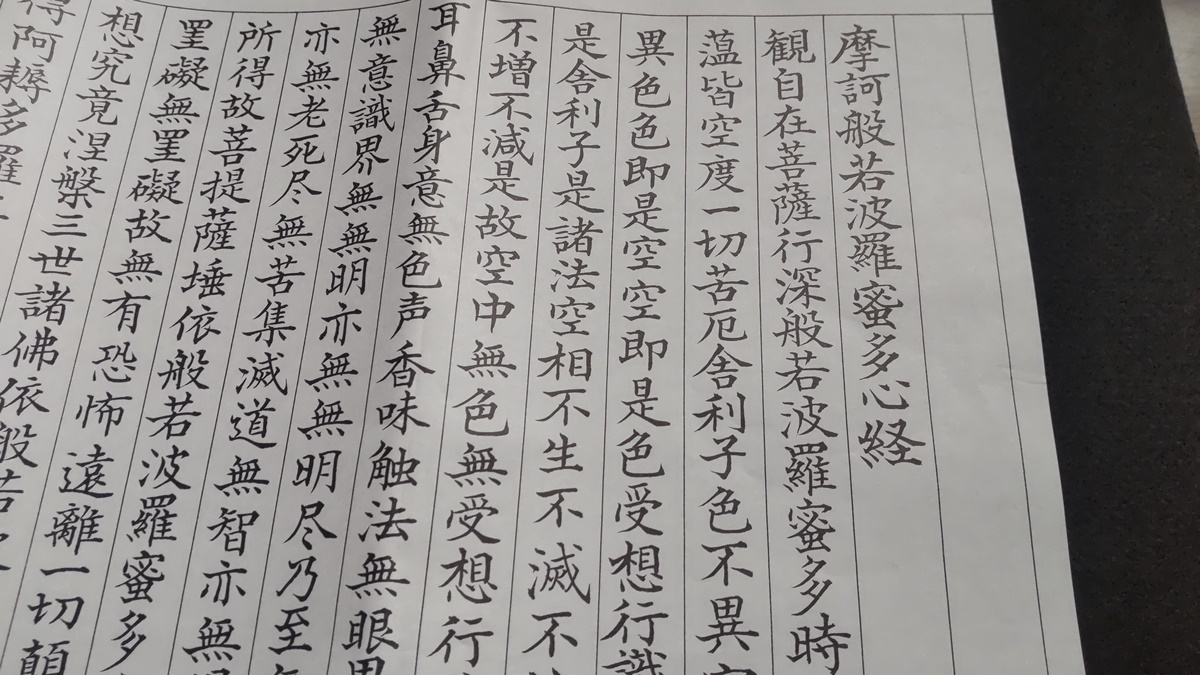 摩訶般若波羅蜜多心経
観自在菩薩行深般若波羅蜜多時
薀皆空度一切苦厄舎利子色不異
異色色即是空空即是色受想行識
是舎利子是諸法空相不生不滅不
不増不減是故空中無色無受想行
耳鼻舌身意無色声香味触法無眼界
無意識界無無明亦無無明尽乃至
亦無老死尽無苦集滅道無智亦無
所得故菩提薩埵依般若波羅蜜多
罣礙無罣礙故無有恐怖遠離一切顛
想究竟涅槃三世諸佛依般若
得阿耨多羅